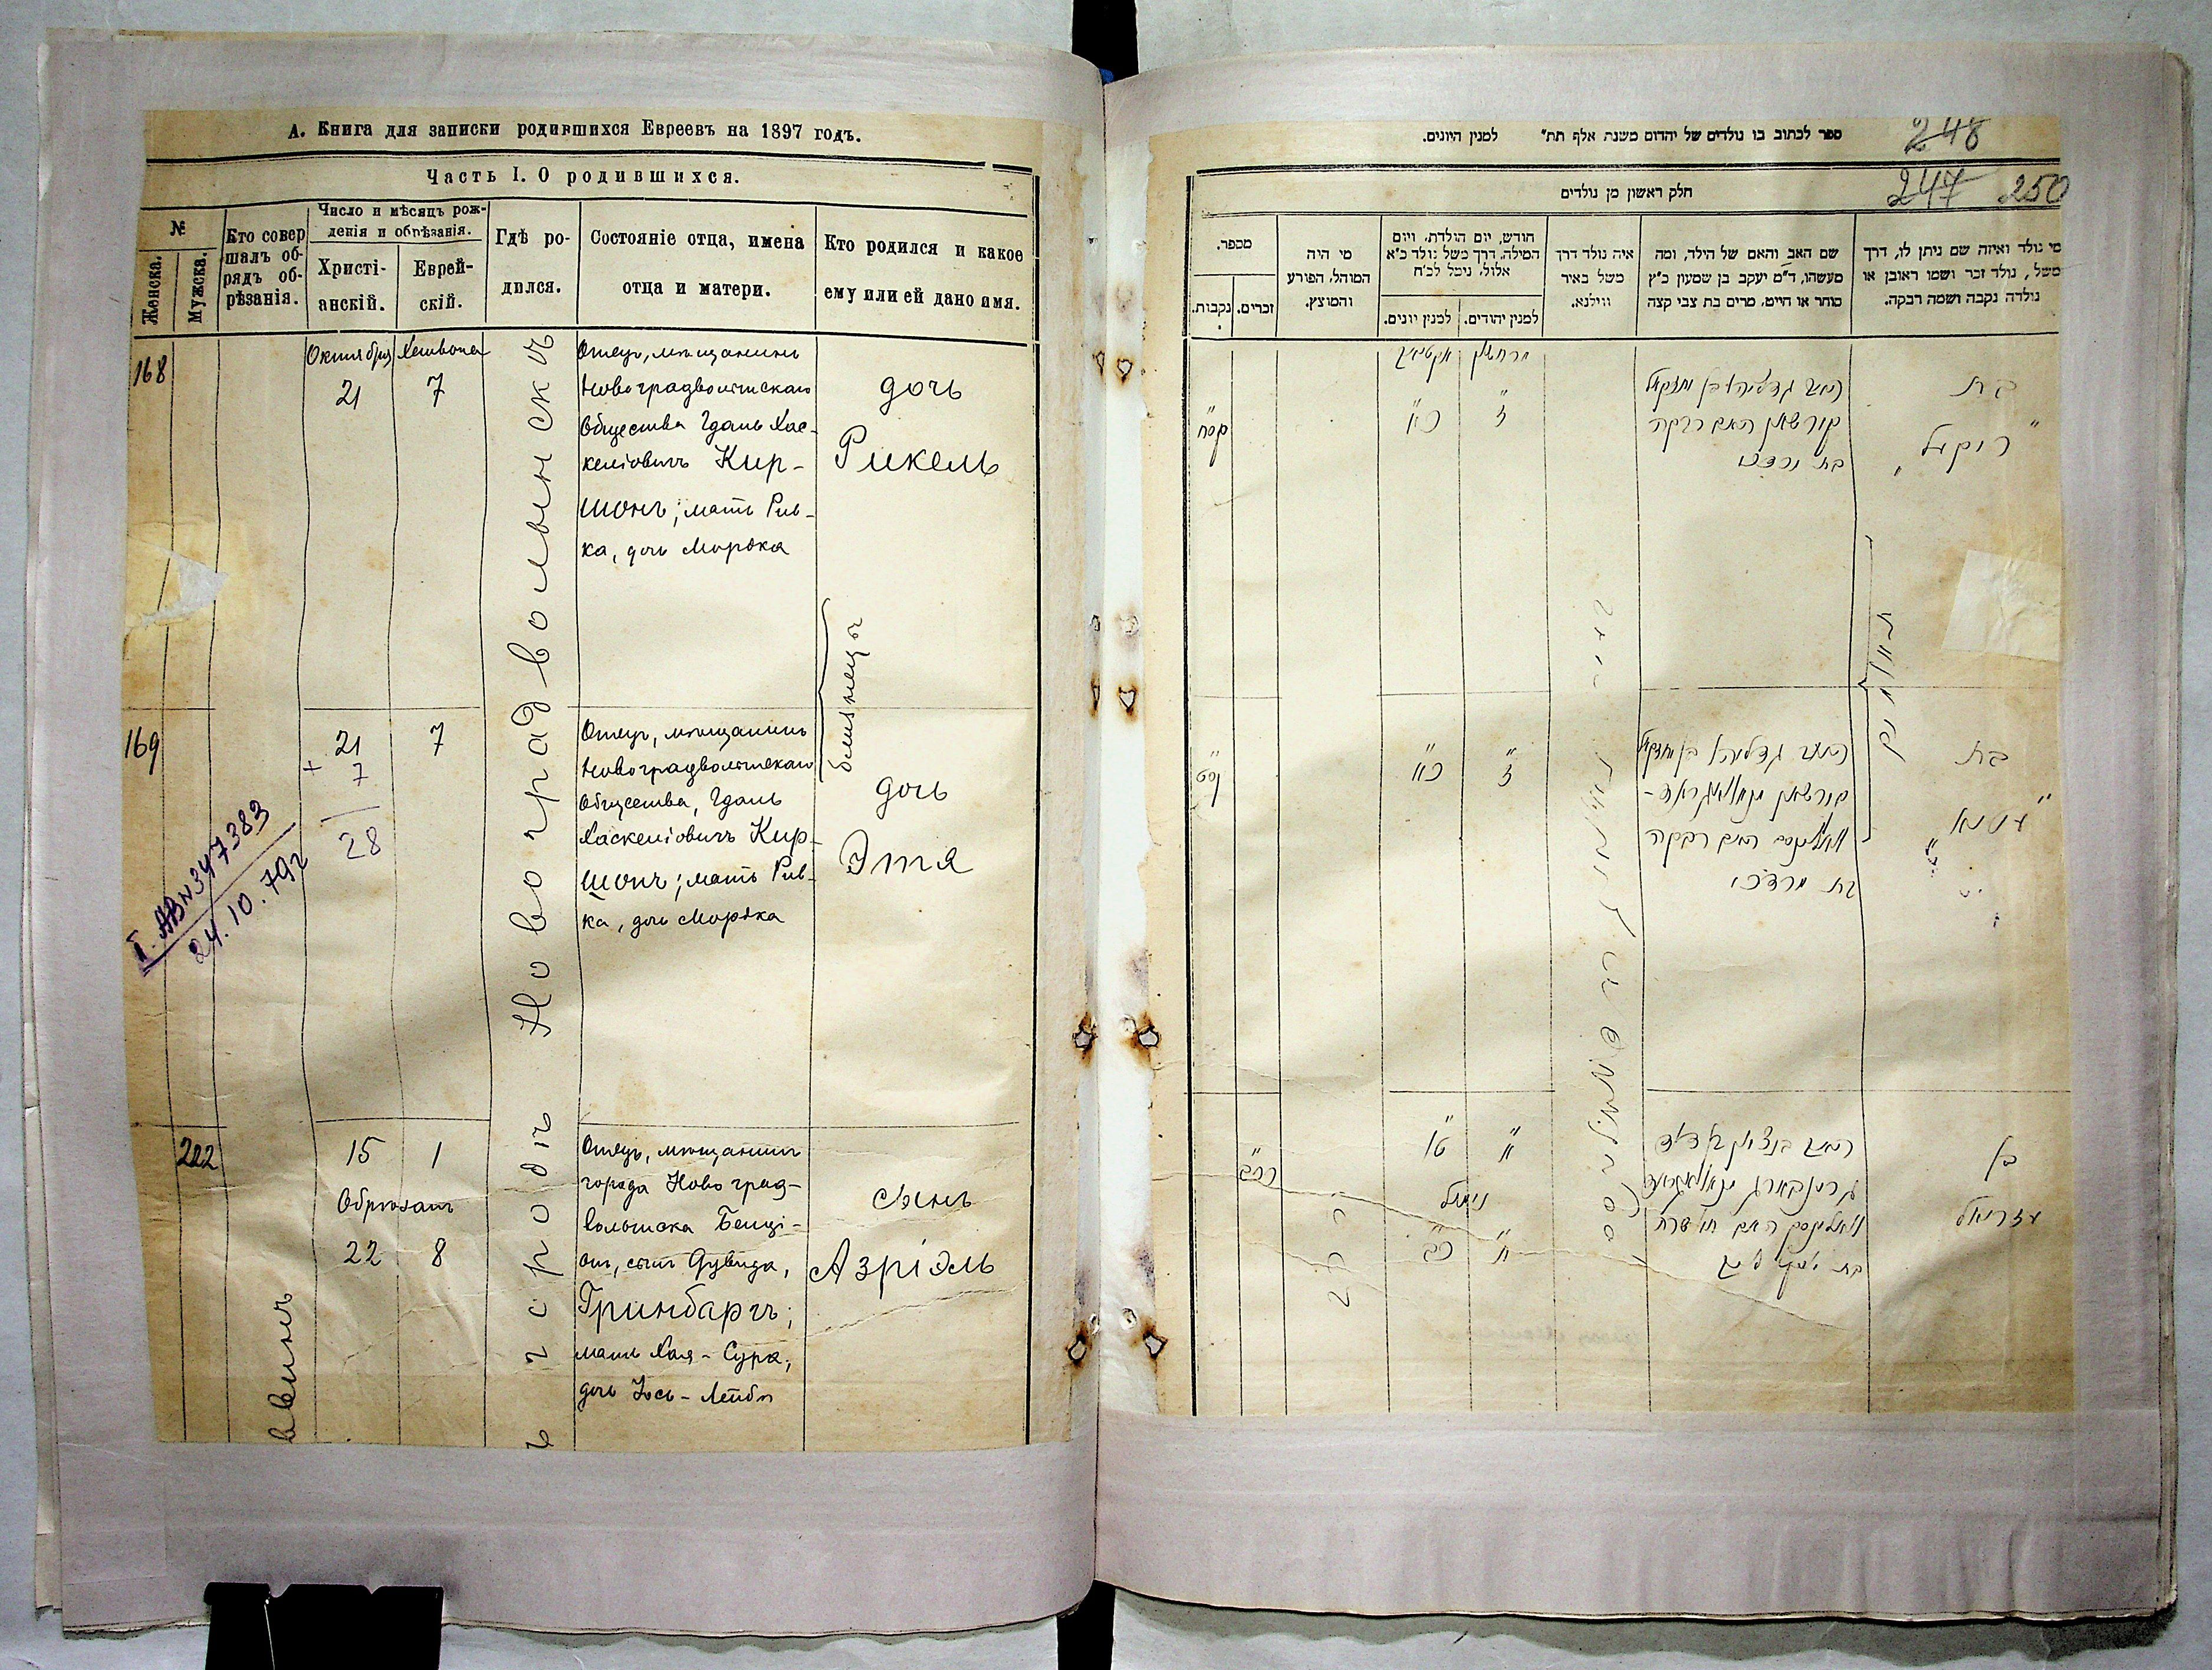 А. Книга для записки родившихся Евреевъ на 1897 годъ.
Часть I. О родившихся.
№
Женска.
Мужска.
Кто совер
шалъ об-
рядъ об-
рѣзанія.
Число и мѣсяцъ рож-
денія и обрѣзанія.
Христі-
анскій.
Еврей-
скій.
Гдѣ ро-
дился.
Состояніе отца, имена
отца и матери.
Кто родился и какое
ему или ей дано имя.
168
Октября
21
7
Отецъ, мѣщанинъ
Новоградволынскаго
Общества Гдаль Хас-
келіовичъ Кир-
шонъ; мать Рив-
ка, дочь Мордка
дочь
Рикель
близнецы
169
21
+ 7
28
7
Отецъ, мѣщанинъ
Новоградволынскаго
Общества, Гдаль
Хаскеліовичъ Кир-
шонъ; мать Рив-
ка, дочь Мордка
дочь
Этя
I. АВ №347383
24.10.79г
222
15
1
Обрѣзанъ
22
8
Отецъ, мѣщанинъ
города Новоград-
волынска Бенці-
онъ, сынъ Дувида,
Гринбаргъ;
мать Хая-Сура,
дочь Іось-Лейбы
сынъ
Азріэль
ъ городѣ Новоградволынскѣ
ввинъ
248
247 250
ספר לכתוב בו נולדים של יהדום משנת אלף תת״ למנין היונים.
חלק ראשון מן נולדים
מי נולד ואיזה שם ניתן לו, דרך
משל, נולד זכר ושמו ראובן או
נולדה נקבה ושמה רבקה.
שם האב והאם של הילד, ומה
מעשהו, ד״מ יעקב בן שמעון כ״ץ
סוחר או חייט, מרים בת צבי קצה
איה נולד דרך
משל באיר
ווילנא.
חודש, יום הולדת, ויום
המילה, דרך משל נולד כ״א
אלול, נימל לכ״ח
למנין יהודים.
למנין יונים.
מי היה
המוהל, הפורע
והמוצץ.
מספר.
זכרים.
נקבות.
בת
"רוקיל"
האב גדליהו בן יחזקאל
קורשאן האם רבקה
בת מרדכי
ז
כ״א
קסח
בת
ז
כ״א
קסט
קורשאן
האם רבקה
בת מרדכי
בן
עזריאל
נימול
ח
כ״ב
רכב